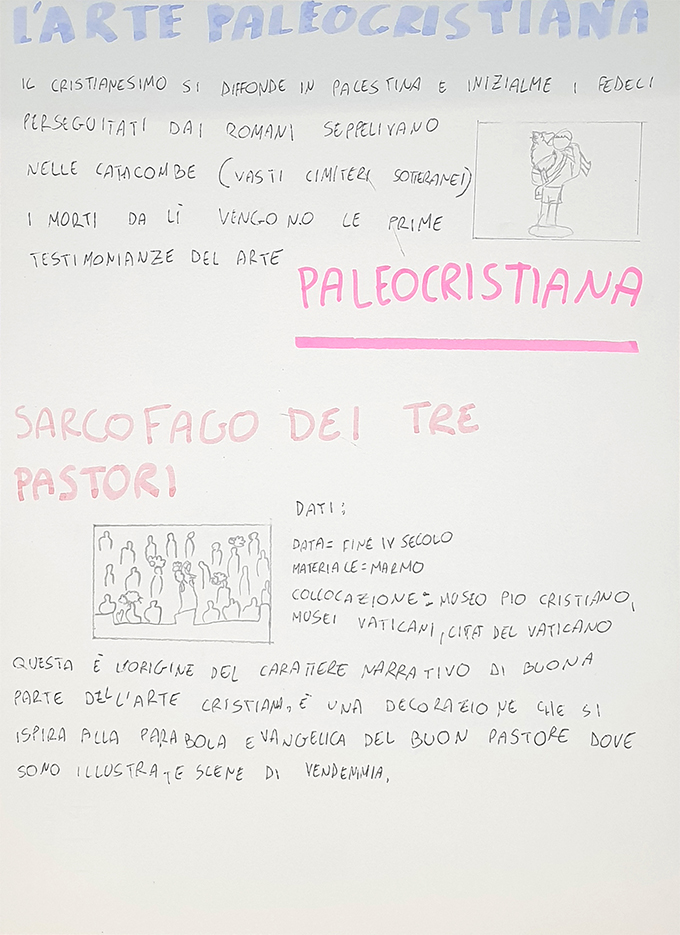 L'ARTE PALEOCRISTIANA
IL CRISTIANESIMO SI DIFFONDE IN PALESTINA E INIZIALME I FEDELI
PERSEGUITATI DAI ROMANI SEPPELIVANO
NELLE CATACOMBE (VASTI CIMITERI SOTTERANEI)
I MORTI DA LÌ VENGONO LE PRIME
TESTIMONIANZE DEL ARTE
PALEOCRISTIANA
SARCOFAGO DEI TRE
PASTORI
DATI:
DATA= FINE IV SECOLO
MATERIALE= MARMO
COLLOCAZIONE= MUSEO PIO CRISTIANO,
MUSEI VATICANI, CITTÀ DEL VATICANO
QUESTA È L'ORIGINE DEL CARATTERE NARRATIVO DI BUONA
PARTE DELL'ARTE CRISTIANA, È UNA DECORAZIONE CHE SI
ISPIRA ALLA PARABOLA EVANGELICA DEL BUON PASTORE DOVE
SONO ILLUSTRATE SCENE DI VENDEMMIA.